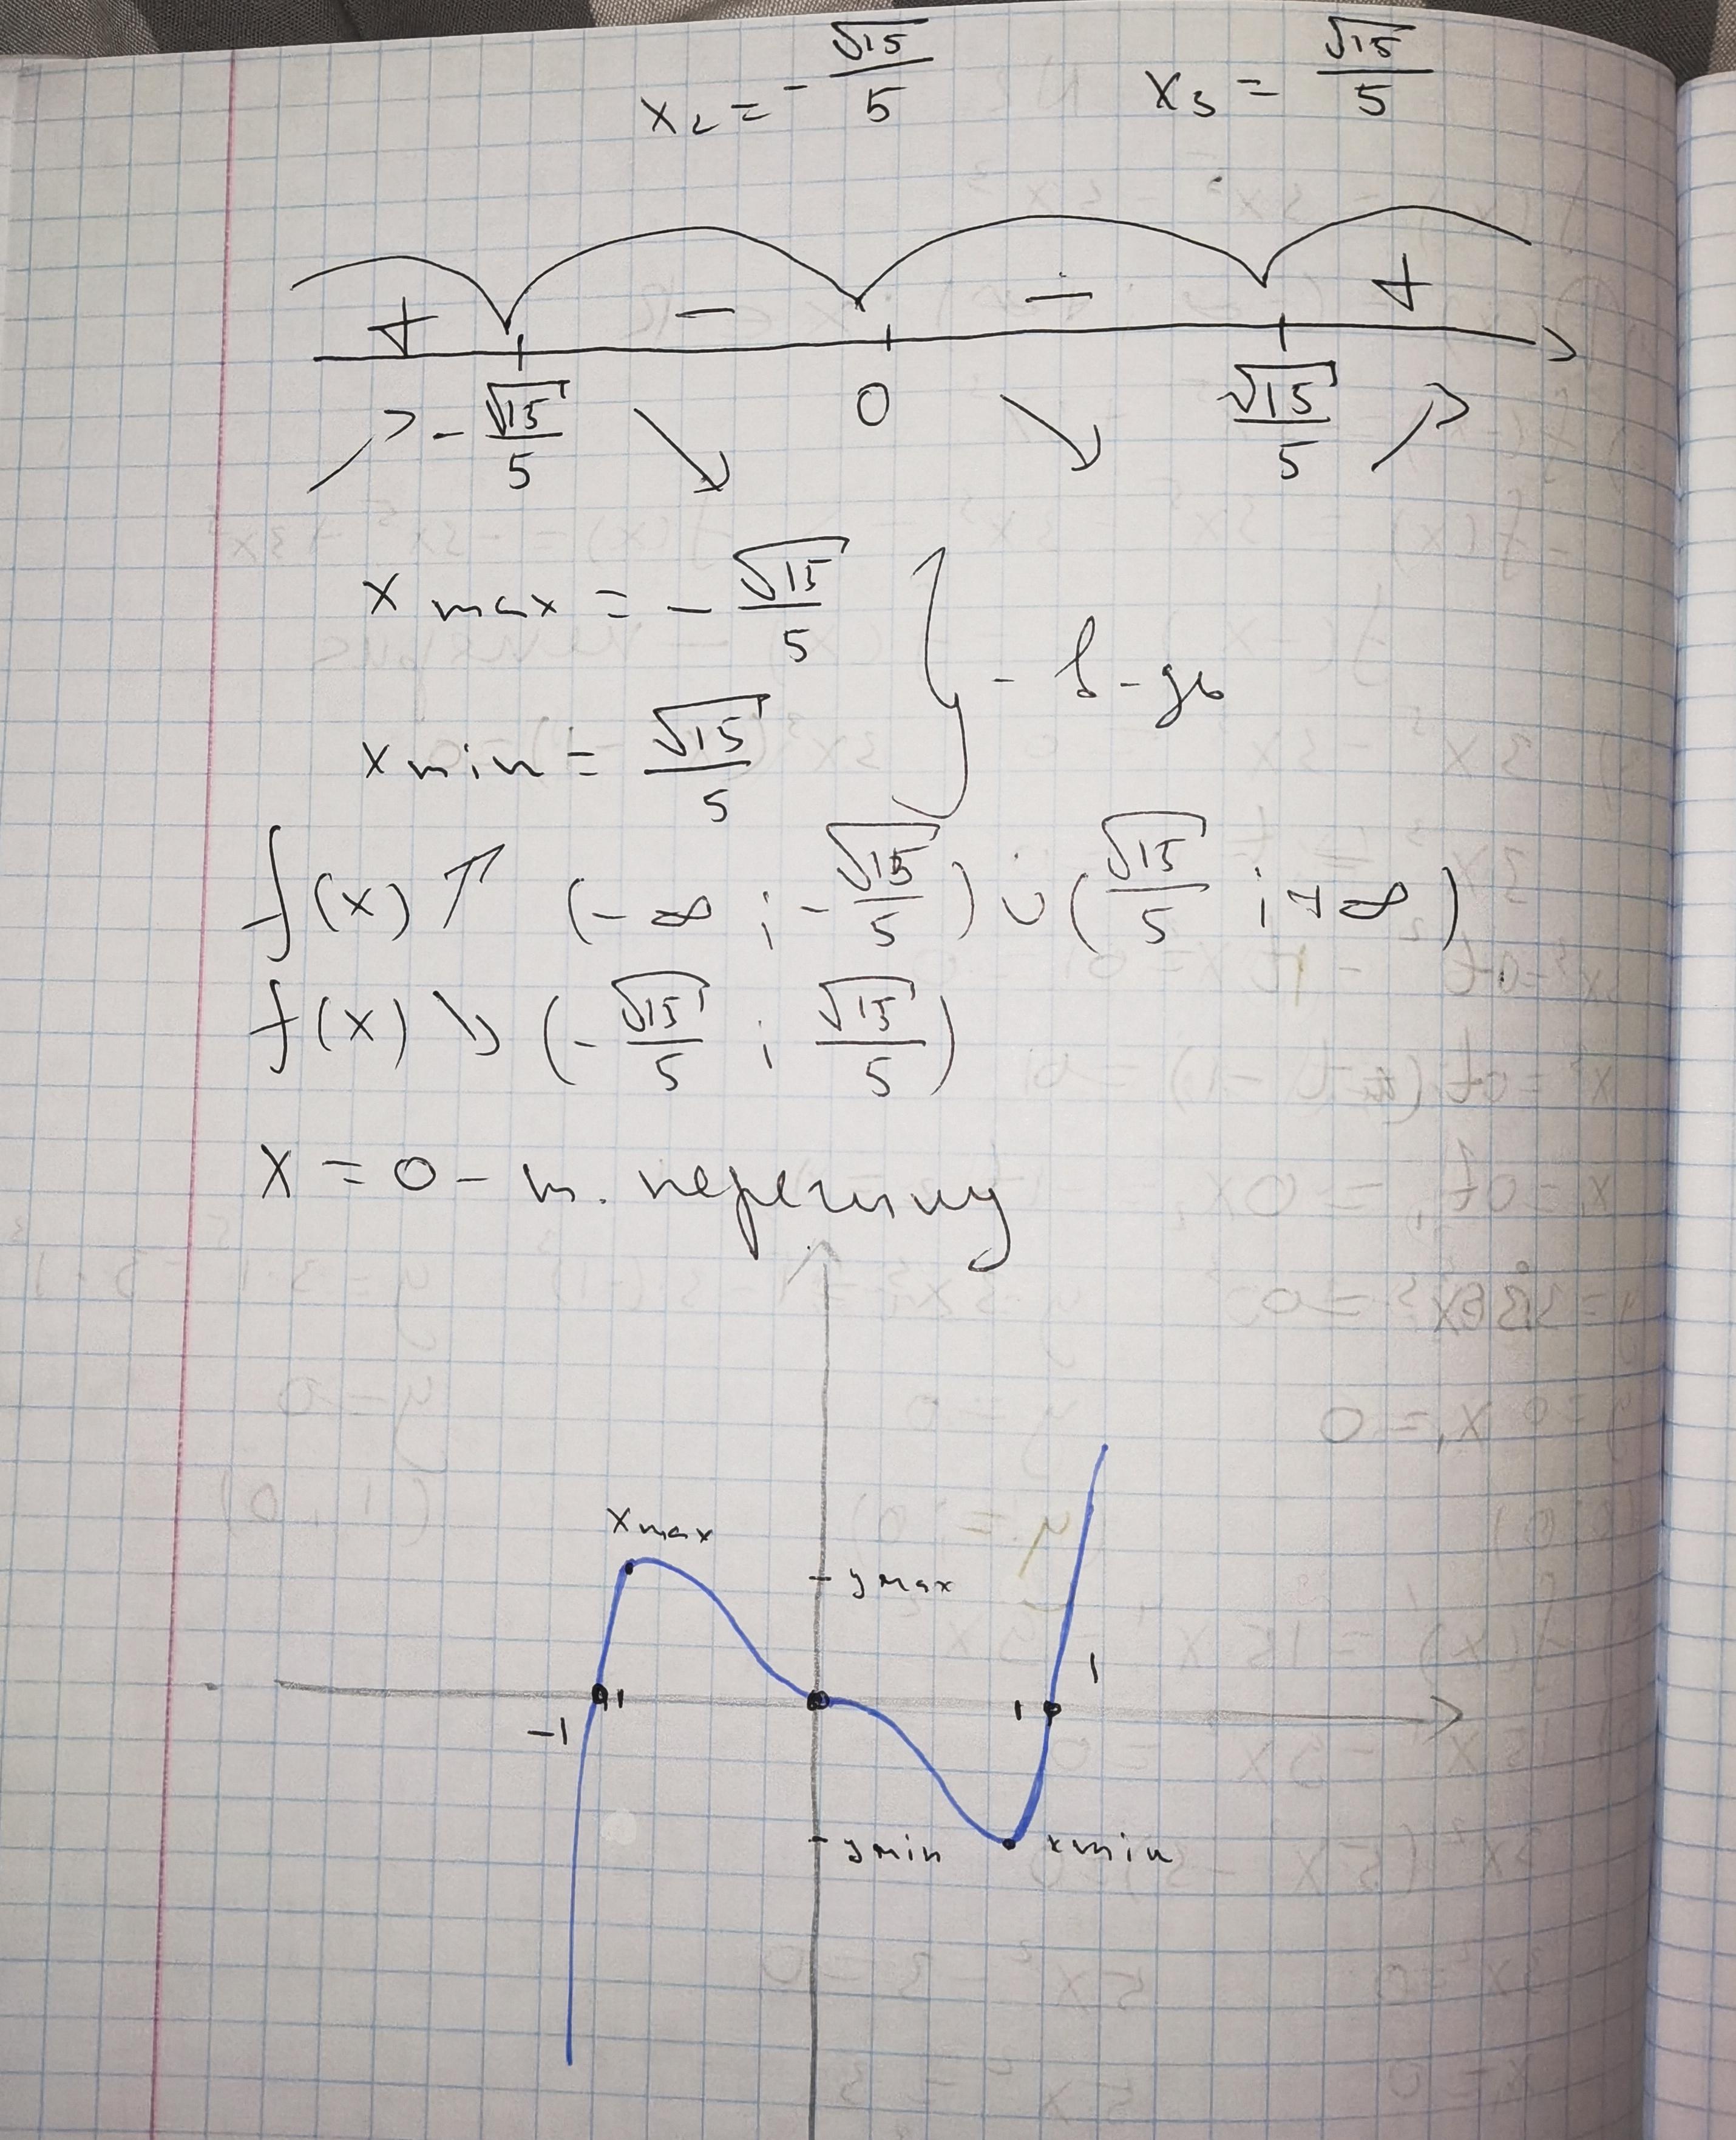 x₂ = -√15/5 x₃ = √15/5
+ - - +
-√15/5 0 √15/5
x max = -√15/5
x min = √15/5 - в-дь
f(x) ↗ (-∞ ; -√15/5) ∪ (√15/5 ; +∞)
f(x) ↘ (-√15/5 ; √15/5)
x = 0 - т. перегину
x max
y max
-1 1 1 1
y min x min